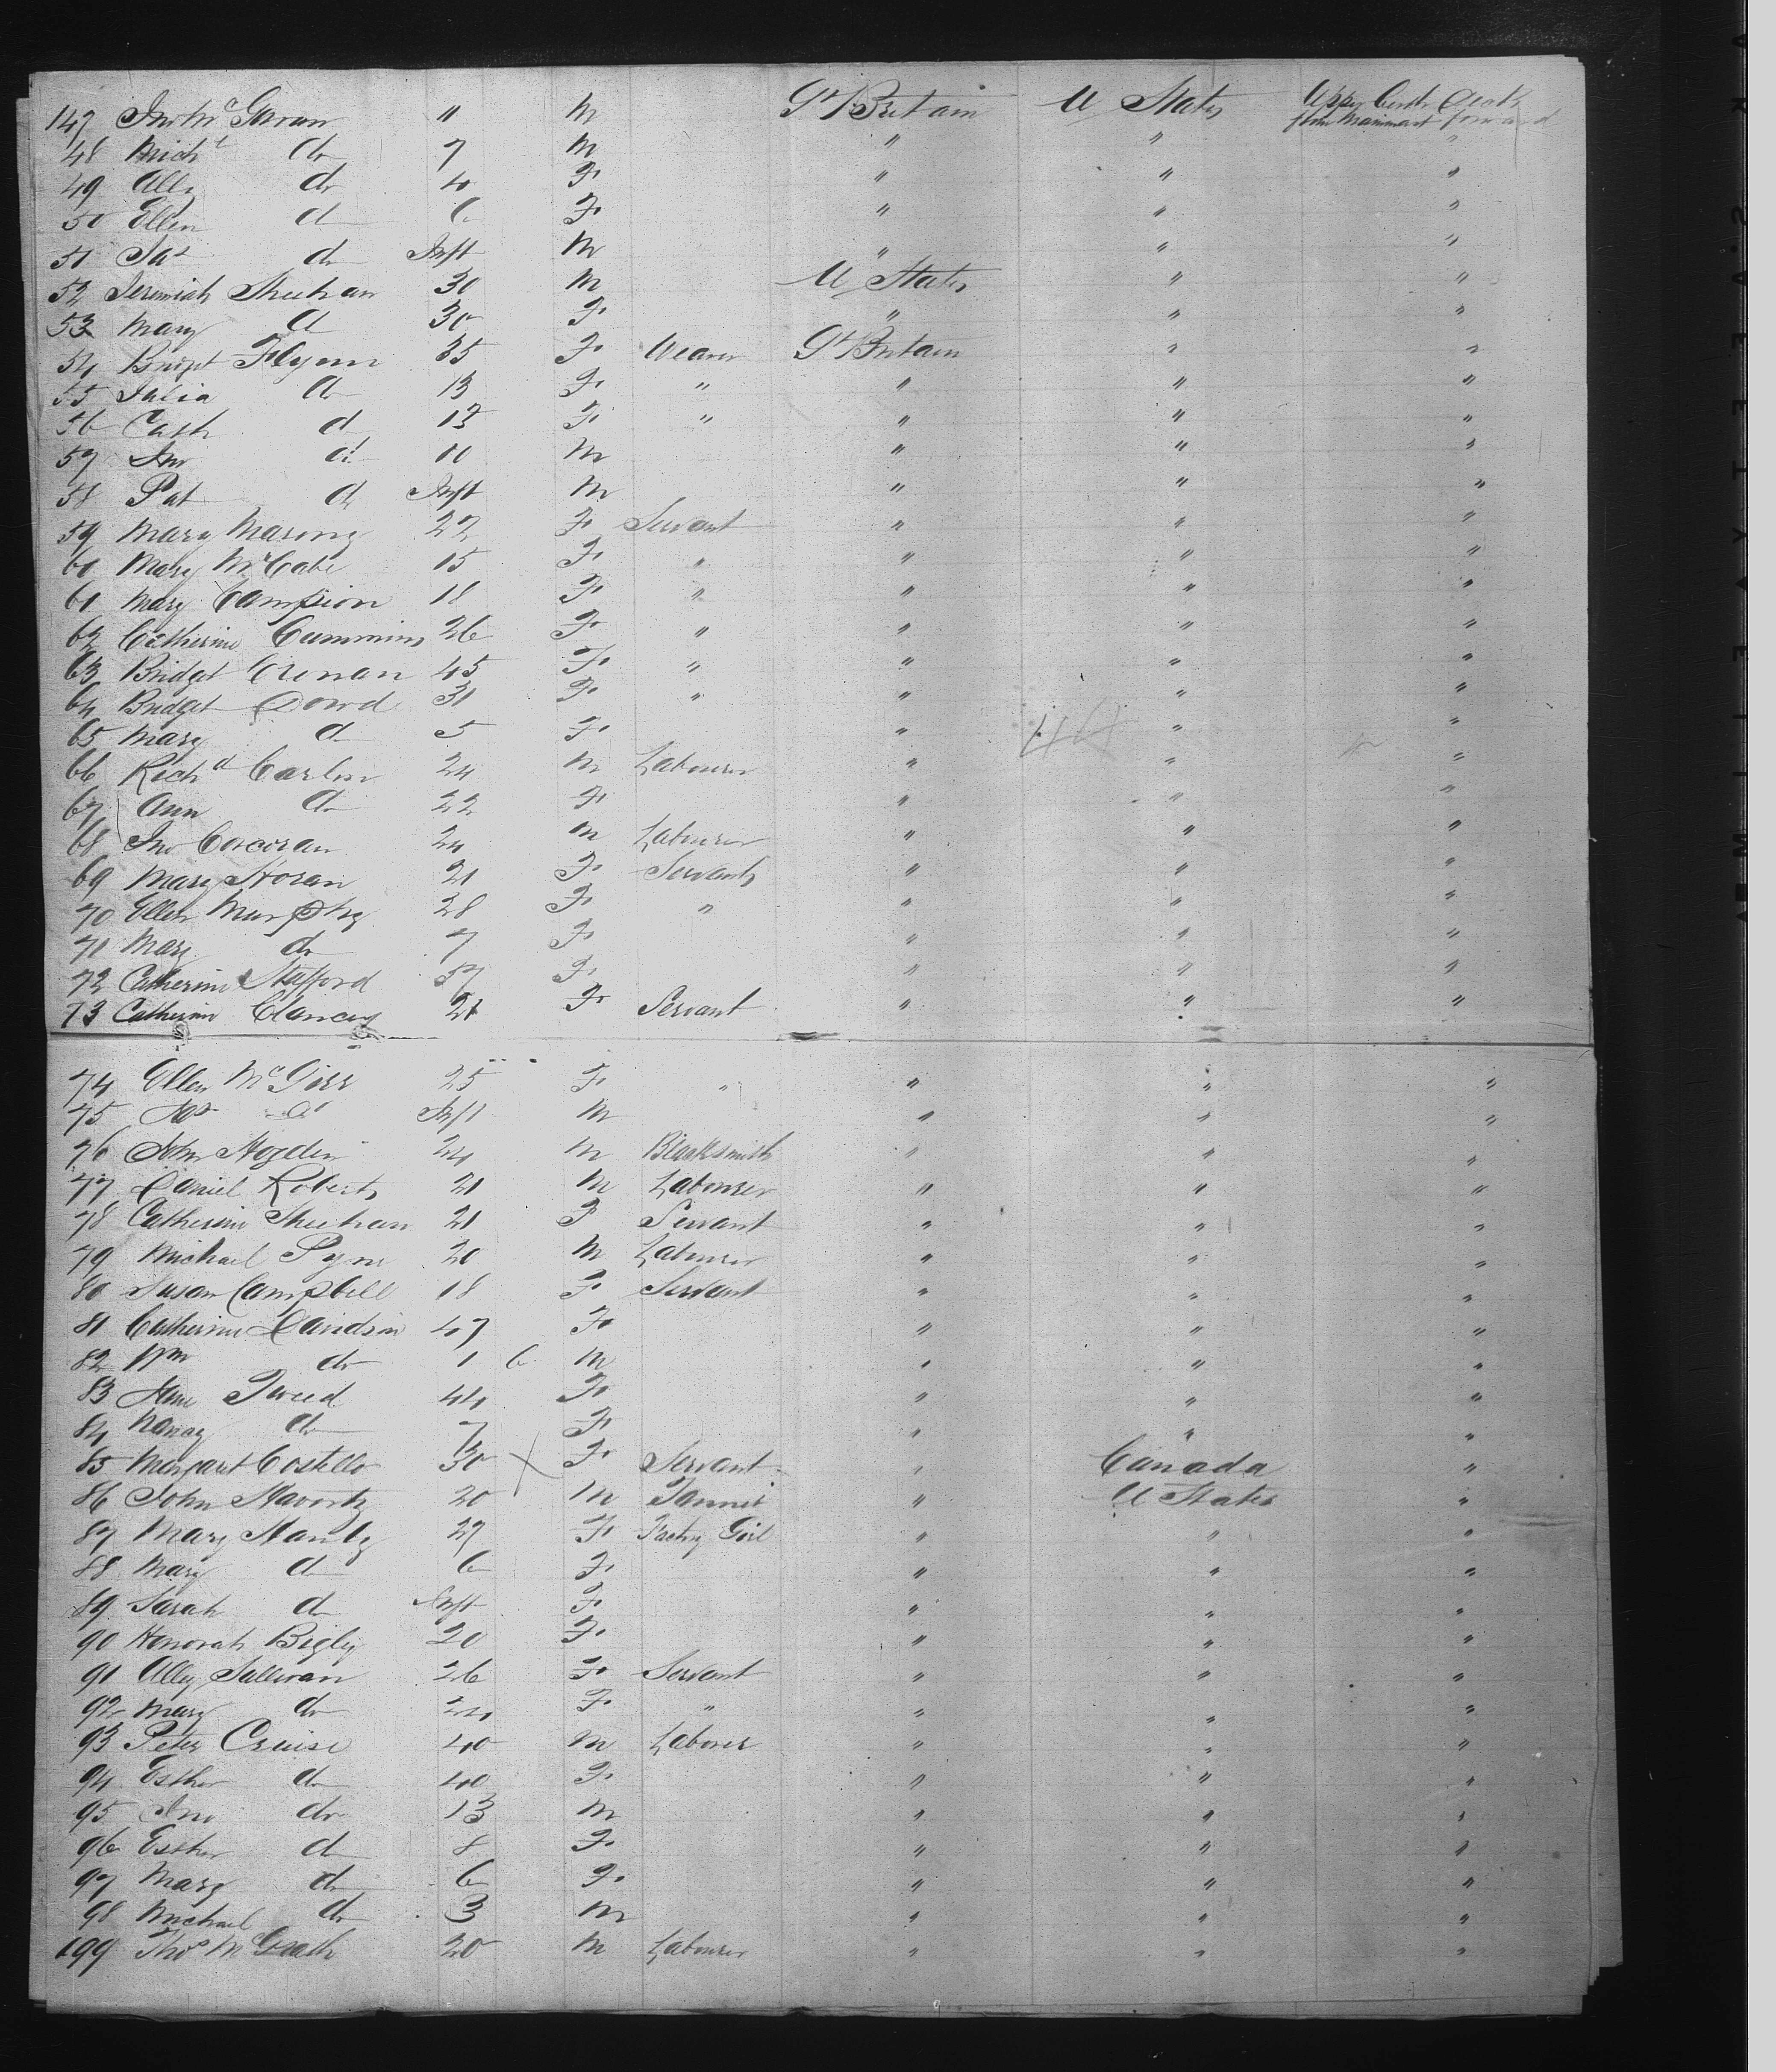 147 Jno Mc Gavan 11 M Gt Britain U States Upper Birth Deck from Mainmast forward
48 Mich^l do 7 M " " "
49 Ally do 4 F " " "
50 Ellen do 6 F " " "
51 Jas do Inft M " " "
52 Jeremiah Sheehan 30 M U States " "
53 Mary do 30 F " " "
54 Bridget Flynn 35 F Weaver Gt Britain " "
55 Julia do 13 F " " " "
56 Cath do 13 F " " " "
57 Jno do 10 M " " "
58 Pat do Inft M " " "
59 Mary Marony 22 F Servant " " "
60 Mary McCabe 15 F " " " "
61 Mary Campion 18 F " " " "
62 Catherine Cummins 26 F " " " "
63 Bridget Crenan 45 F " " " "
64 Bridget Dowd 31 F " " " "
65 Mary do 5 F " 44 " "
66 Rich^d Carlin 24 M Labourer " " "
67 Ann do 22 F " " "
68 Jno Corcoran 24 M Labourer " " "
69 Mary Horan 21 F Servants " " "
70 Ellen Murphy 28 F " " " "
71 Mary do 7 F " " "
72 Catherine Stafford 57 F " " "
73 Catherine Clancey 21 F Servant " " "
74 Ellen McGirr 25 F " " " "
75 do Inft M " " "
76 John Hogden 24 M Blacksmith " " "
77 Daniel Roberts 21 M Labourer " " "
78 Catherine Sheehan 21 F Servant " " "
79 Michael Pyne 20 M Labourer " " "
80 Susan Campbell 18 F Servant " " "
81 Catherine Davidson 47 F " " "
82 Wm do 1 6 M " " "
83 Jane Tweed 44 F " " "
84 Nancy do 7 F " " "
85 Margaret Costello 30 X F Servant " Canada "
86 John Havorty 20 M " U States "
87 Mary Hanly 27 F Factry Girl " " "
88 Mary do 6 F " " "
89 Sarah do Inft F " " "
90 Honorah Bigly 20 F " " "
91 Ally Sullivan 26 F Servant " " "
92 Mary do 24 F " " " "
93 Peter Cruise 40 M Laborer " " "
94 Esther do 40 F " " "
95 Jno do 13 M " " "
96 Esther do 8 F " " "
97 Mary do 6 F " " "
98 Michael do 3 M " " "
199 Thos McGrath 20 M Labourer " " "